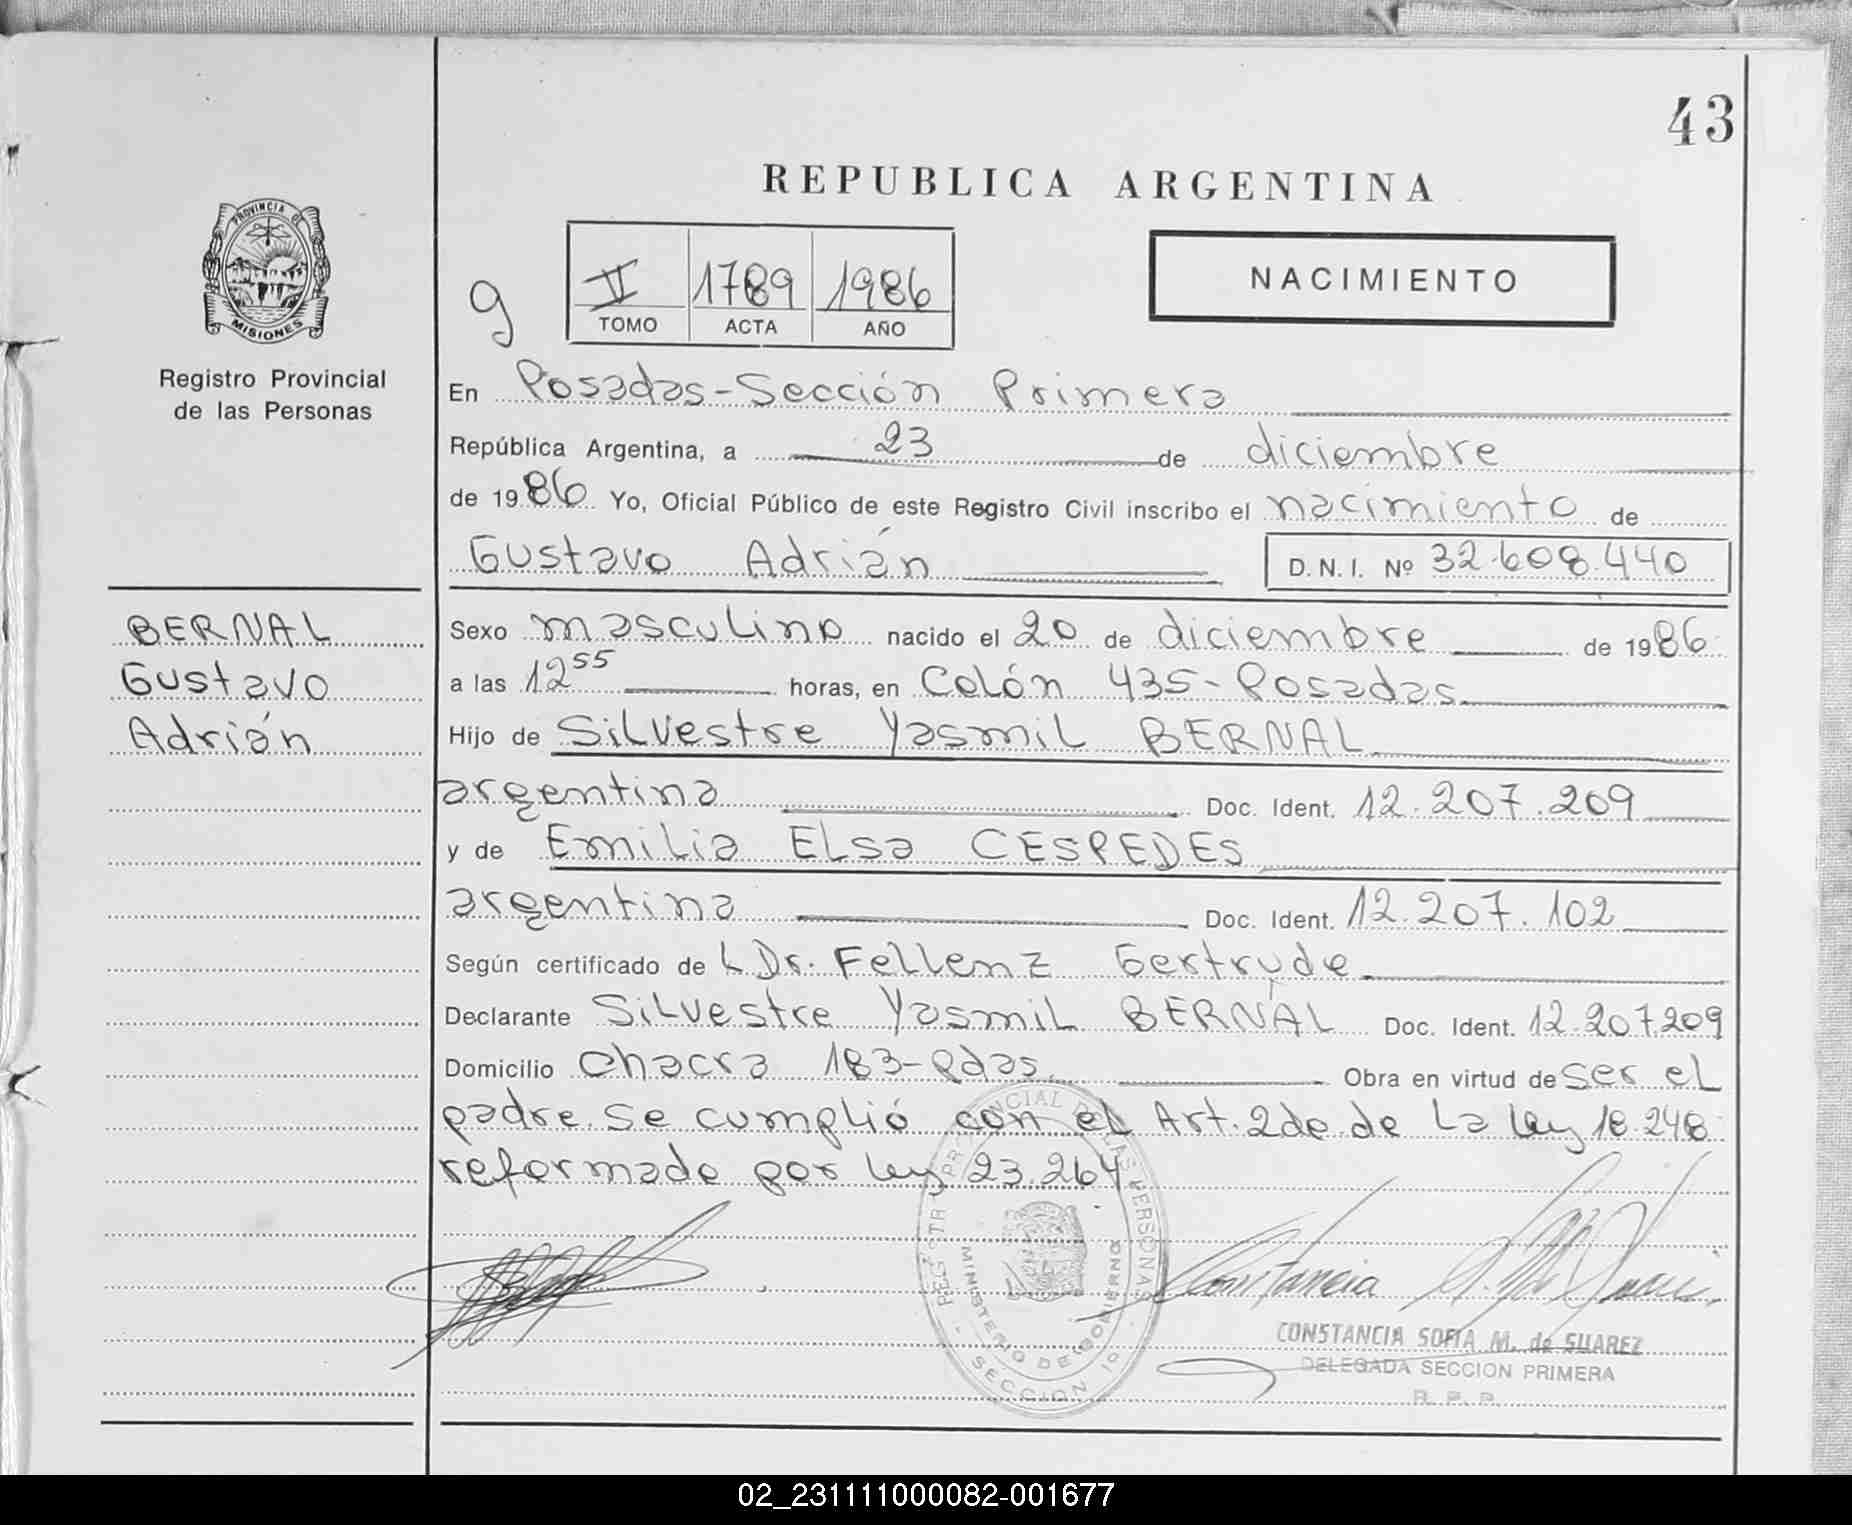 43
REPUBLICA ARGENTINA
PROVINCIA DE
MISIONES
Registro Provincial
de las Personas
g
V 1789 1986
TOMO ACTA AÑO
NACIMIENTO
En Posadas-Sección Primera
República Argentina, a 23 de diciembre
de 1986 Yo, Oficial Público de este Registro Civil inscribo el nacimiento de
Gustavo Adrián D.N.I. Nº 32.608.440
BERNAL
Gustavo
Adrián
Sexo masculino nacido el 20 de diciembre de 1986
a las 12 55 horas, en Colón 435-Posadas
Hijo de Silvestre Yasmil BERNAL
argentina Doc. Ident. 12.207.209
y de Emilia Elsa CESPEDES
argentina Doc. Ident. 12.207.102
Según certificado de Dr. Fellenz Gertrude
Declarante Silvestre Yasmil BERNAL Doc. Ident. 12.207.209
Domicilio Chacra 183-Pdas. Obra en virtud de ser el
padre. Se cumplió con el Art. 2do de La Ley 18.248
reformado por Ley 23.264
MINISTERIO DE GOBIERNO
SECCION 1º
CONSTANCIA SOFIA M. de SUAREZ
DELEGADA SECCION PRIMERA
R. P. P.
02_231111000082-001677